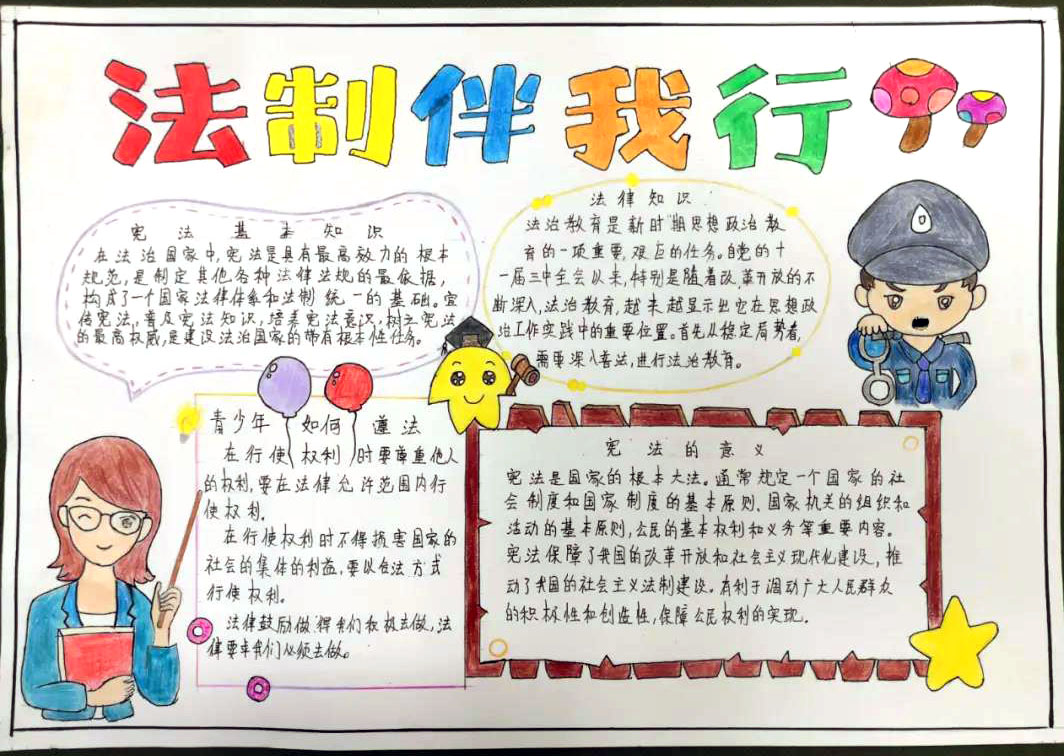 法制伴我行
宪法基本知识
在法治国家中,宪法是具有最高效力的根本
规范,是制定其他各种法律法规的最依据,
构成了一个国家法律体系和法制统一的基础。宣
传宪法,普及宪法知识,培养宪法意识,树立宪法
的最高权威,是建设法治国家的带有根本性任务。
法律知识
法治教育是新时期思想政治教
育的一项重要,艰巨的任务。自党的十
一届三中全会以来,特别是随着改革开放的不
断深入,法治教育,越来越显示出它在思想政
治工作实践中的重要位置。首先从稳定局势看,
需要深入普法,进行法治教育。
青少年如何遵法
在行使权利时要尊重他人
的权利,要在法律允许范围内行
使权利。
在行使权利时不得损害国家的
社会的集体的利益,要以合法方式
行使权利。
法律鼓励做我们积极去做,法
律要求我们必须去做。
宪法的意义
宪法是国家的根本大法。通常规定一个国家的社
会制度和国家制度的基本原则、国家机关的组织和
活动的基本原则,公民的基本权利和义务等重要内容。
宪法保障了我国的改革开放和社会主义现代化建设,推
动了我国的社会主义法制建设。有利于调动广大人民群众
的积极性和创造性,保障公民权利的实现。